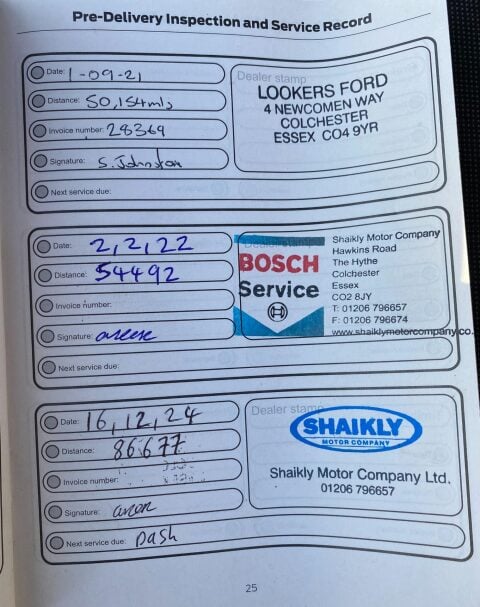 Pre-Delivery Inspection and Service Record
Date: 1-09-21
Distance: 50,154 mls
Invoice number: 28369
Signature: S. Johnston
Next service due:
Dealer stamp
LOOKERS FORD
4 NEWCOMEN WAY
COLCHESTER
ESSEX CO4 9YR
Date: 2,2,22
Distance: 54492
Invoice number:
Signature:
Next service due:
Dealer stamp
BOSCH
Service
Shaikly Motor Company
Hawkins Road
The Hythe
Colchester
Essex
CO2 8JY
T: 01206 796657
F: 01206 796674
www.shaiklymotorcompany.co.
Date: 16,12,24
Distance: 86677
Invoice number:
Signature:
Next service due: Dash
Dealer stamp
SHAIKLY
MOTOR COMPANY
Shaikly Motor Company Ltd.
01206 796657
25